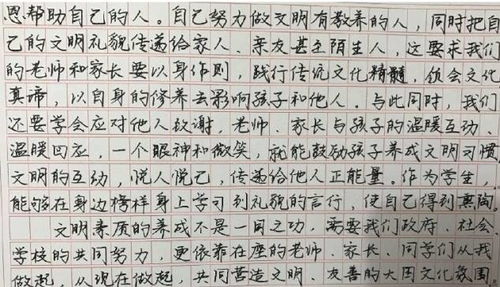 恩帮助自己的人。自己努力做文明有教养的人，同时把自
己的文明礼貌传递给家人、亲友甚至陌生人，这要求我们
的老师和家长要以身作则，践行传统文化精髓，领会文化
真谛，以自身的修养去影响孩子和他人。与此同时，我们
还要学会应对他人致谢，老师、家长与孩子的温暖互动、
温暖回应，一个眼神和微笑，就能鼓励孩子养成文明习惯
文明的互动，悦人悦己，传递给他人正能量。作为学生，
能够在身边榜样身上学习到礼貌的言行，使自己得到熏陶
文明素质的养成不是一日之功，需要我们政府、社会、
学校的共同努力，更依靠在座的老师、家长、同学们从我
做起，从现在做起，共同营造文明、友善的大国文化氛围